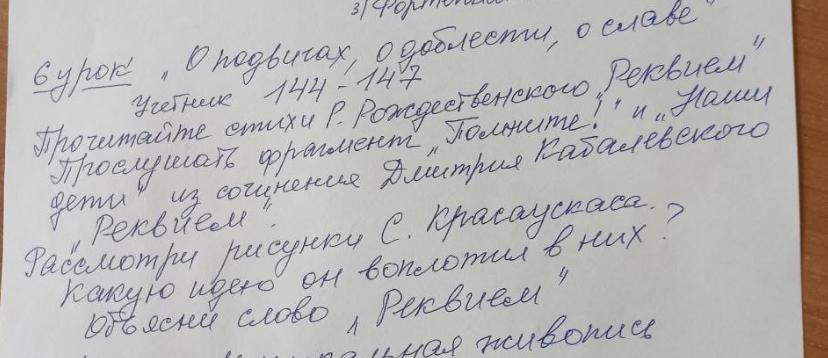 3) Фортепиан
6 урок „О подвигах, о доблести, о славе"
Учебник 144-147
Прочитайте стихи Р. Рождественского „Реквием"
Прослушать фрагмент „Помните!" и „Наши
дети" из сочинения Дмитрия Кабалевского
„Реквием".
Рассмотри рисунки С. Красаускаса.
Какую идею он воплотил в них?
Объясни слово „Реквием"
альная живопись